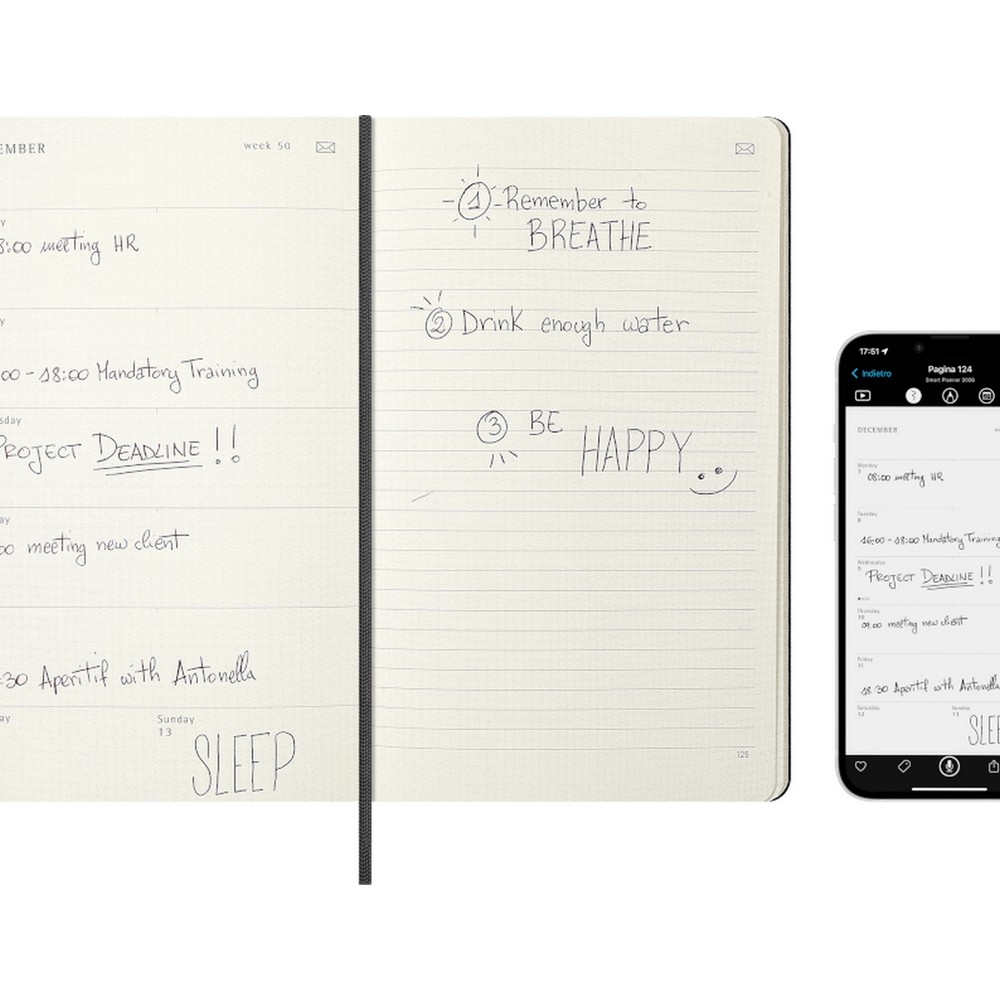 EMBER week 50
y
8:00 meeting HR
y
00 - 18:00 Mandatory Training
sday
PROJECT DEADLINE !!
ay
00 meeting new client
:30 Aperitif with Antonella
ay
Sunday
13
SLEEP
1 Remember to
BREATHE
2 Drink enough water
3 BE
HAPPY
125
17:51
Indietro
Pagina 124
Smart Planner
DECEMBER
Monday
7
08:00 meeting HR
Tuesday
8
16:00 - 18:00 Mandatory Training
Wednesday
9
PROJECT DEADLINE !!
Thursday
10
09:00 meeting new client
Friday
11
18:30 Aperitif with Antonella
Saturday Sunday
12 13
SLEE